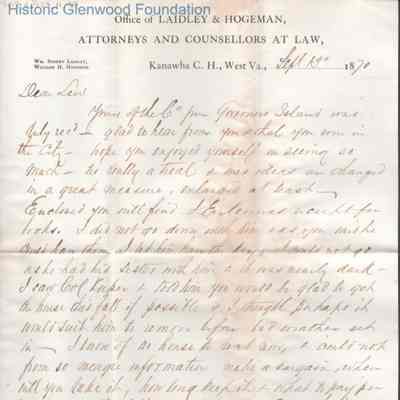 Historic Glenwood Foundation
Office of LAIDLEY & HOGEMAN,
ATTORNEYS AND COUNSELLORS AT LAW,
WM. SYDNEY LAIDLEY,
WILLIAM H. HOGEMAN.
Kanawha C. H., West Va., Sept 1870
Dear Lew
Yours of the from Governors Island was
duly recd — glad to hear from you & that you were in
the City — hope you enjoyed yourself in seeing so
much — is really a treat & ones ideas are changed
in a great measure, enlarged at least —
Enclosed you will find receipt for
books. I did not go down with him as you
him, I let him have the & could not go
as he had his sister with him & it was nearly dark —
I saw Col & told him you would be glad to get
the house this fall if possible & I thought perhaps it
would suit him to remove before bad weather set
in — I know of no horse to & could not
from so meagre information make a bargain, when
will you take it, how long keep it & what to pay per